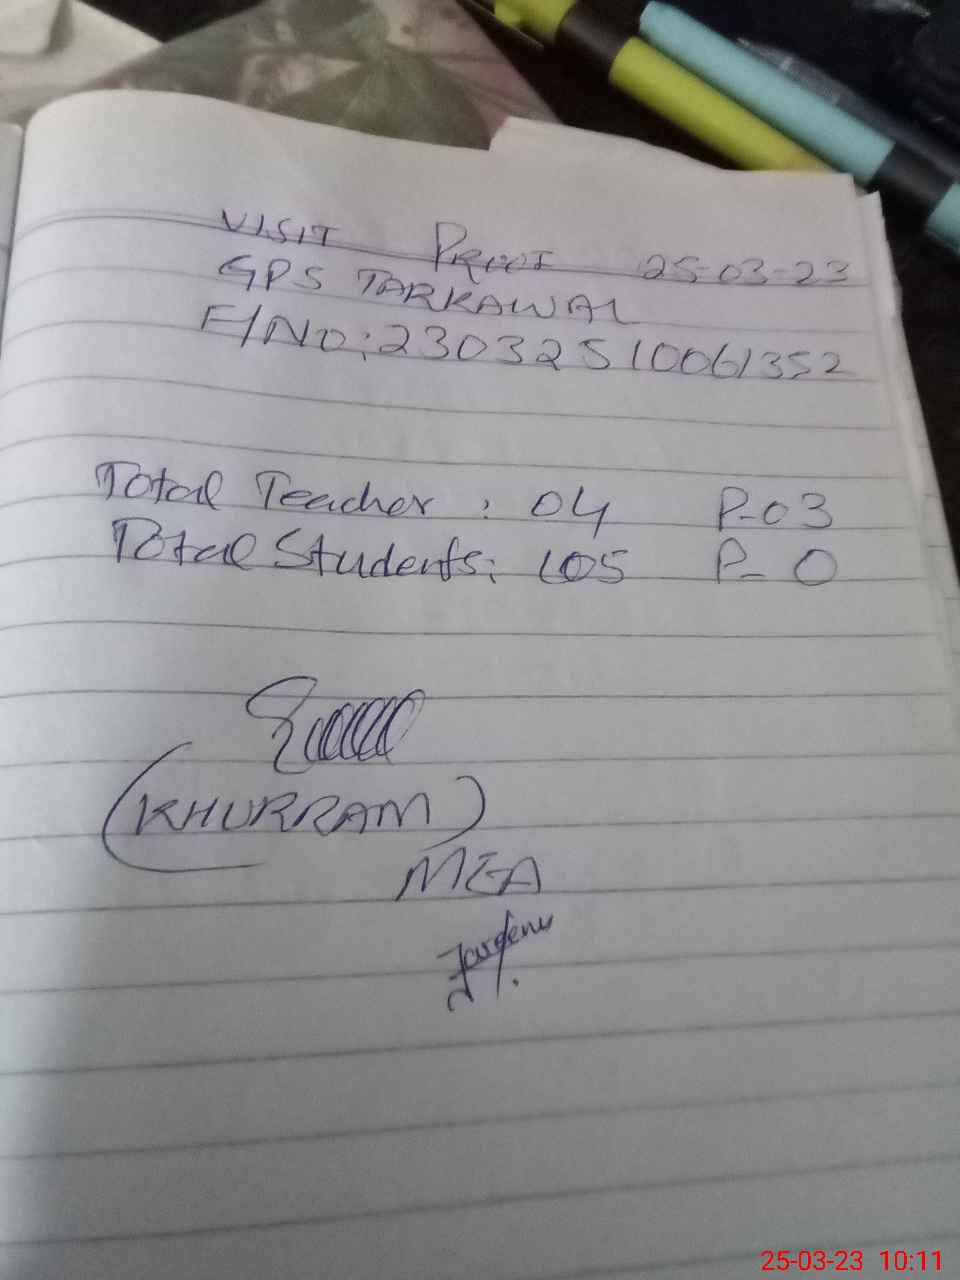 VISIT PROOF 25-03-23
GPS TARKAWAL
F/NO: 23032510061352
Total Teacher : 04 P-03
Total Students: 105 P-0
(KHURRAM)
MEA
25-03-23 10:11